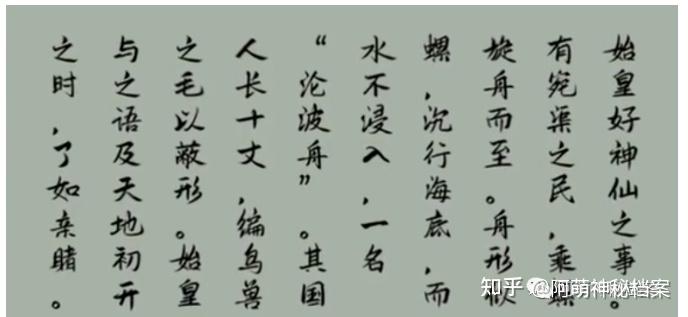 始皇好神仙之事。
有宛渠之民，乘螺
旋舟而至。舟形似
螺，沉行海底，而
水不浸入，一名
“沦波舟”。其国
人长十丈，编鸟兽
之毛以蔽形。始皇
与之语及天地初开
之时，了如亲睹。
知乎 @阿萌神秘档案